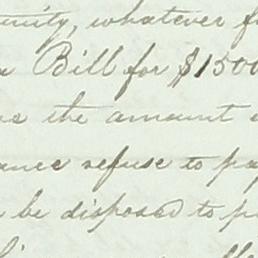 unity, whatever f
a Bill for $1500
as the amount
ance refuse to pa
be disposed to p